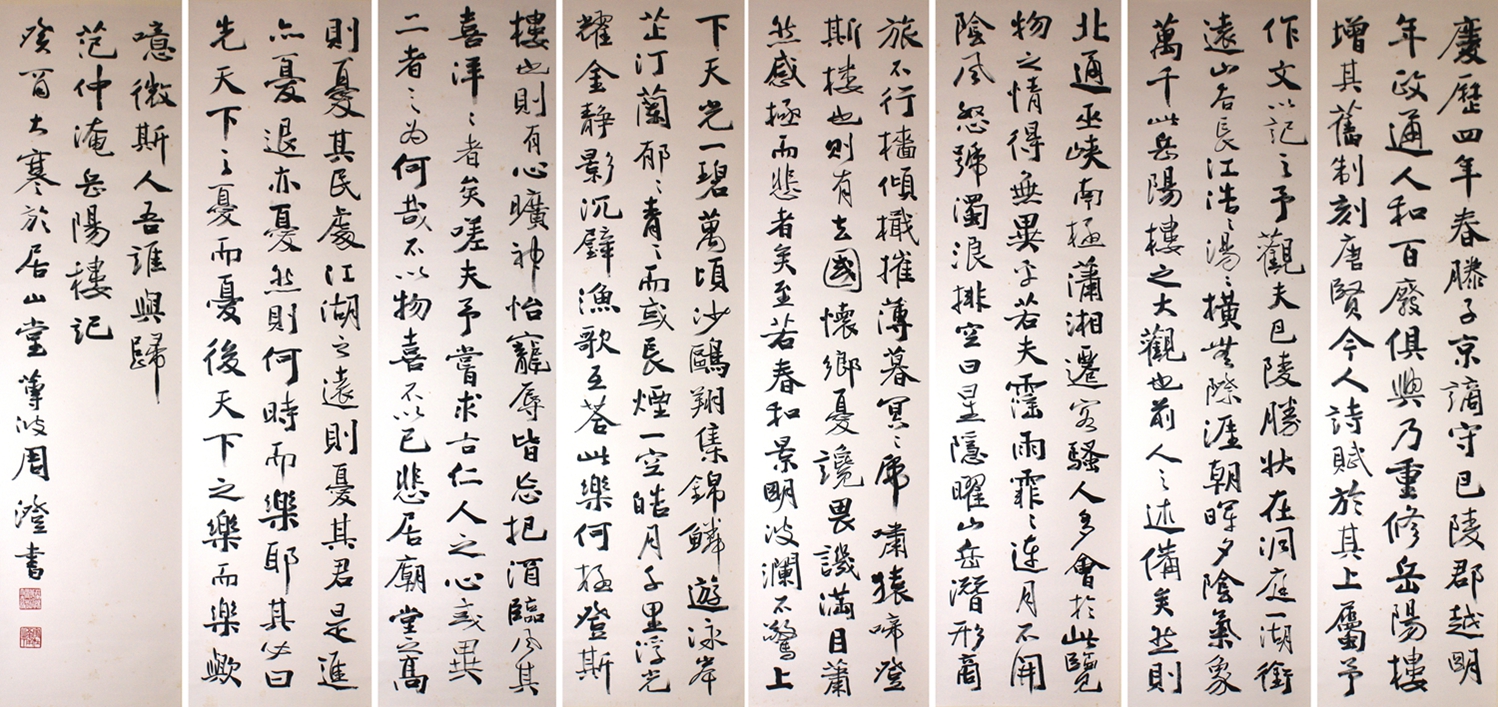 慶歷四年春滕子京謫守巴陵郡越明
年政通人和百廢俱興乃重修岳陽樓
增其舊制刻唐賢今人詩賦於其上屬予
作文以記之予觀夫巴陵勝狀在洞庭一湖銜
遠山吞長江浩〻湯〻橫無際涯朝暉夕陰氣象
萬千此岳陽樓之大觀也前人之述備矣然則
北通巫峽南極瀟湘遷客騷人多會於此覽
物之情得無異乎若夫霪雨霏〻連月不開
陰風怒號濁浪排空日星隱曜山岳潛形商
旅不行檣傾檝摧薄暮冥〻虎嘯猿啼登
斯楼也則有去國懷鄉憂讒畏譏滿目蕭
然感極而悲者矣至若春和景明波瀾不驚上
下天光一碧萬頃沙鷗翔集錦鱗遊泳岸
芷汀蘭郁〻青〻而或長煙一空皓月千里浮光
耀金靜影沉璧漁歌互荅此樂何極登斯
樓也則有心曠神怡寵辱皆忘把酒臨風其
喜洋〻者矣嗟夫予嘗求古仁人之心或異
二者之為何哉不以物喜不以己悲居廟堂之高
則憂其民處江湖之遠則憂其君是進
亦憂退亦憂然則何時而樂耶其必曰
先天下之憂而憂後天下之樂而樂歟
噫微斯人吾誰與歸
范仲淹岳陽樓記
癸酉大寒於居山堂蓴波周澄書